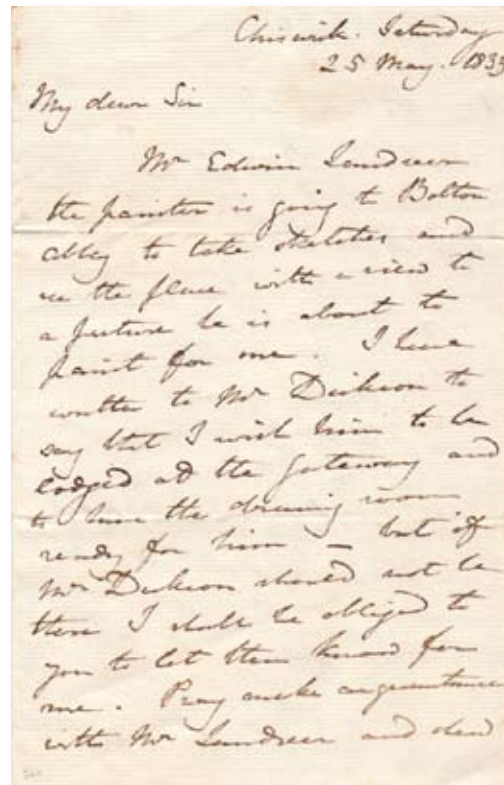 Chiswick. Saturday
25 May. 1833
My dear Sir
Mr Edwin Landseer
the painter is going to Bolton
Abbey to take sketches and
see the place with a view to
a picture he is about to
paint for me. I have
written to Mr Dickson to
say that I wish him to be
lodged at the gateway and
to have the drawing room
ready for him – but if
Mr Dickson should not be
there I shall be obliged to
you to let them know for
me. Pray make acquaintance
with Mr Landseer and